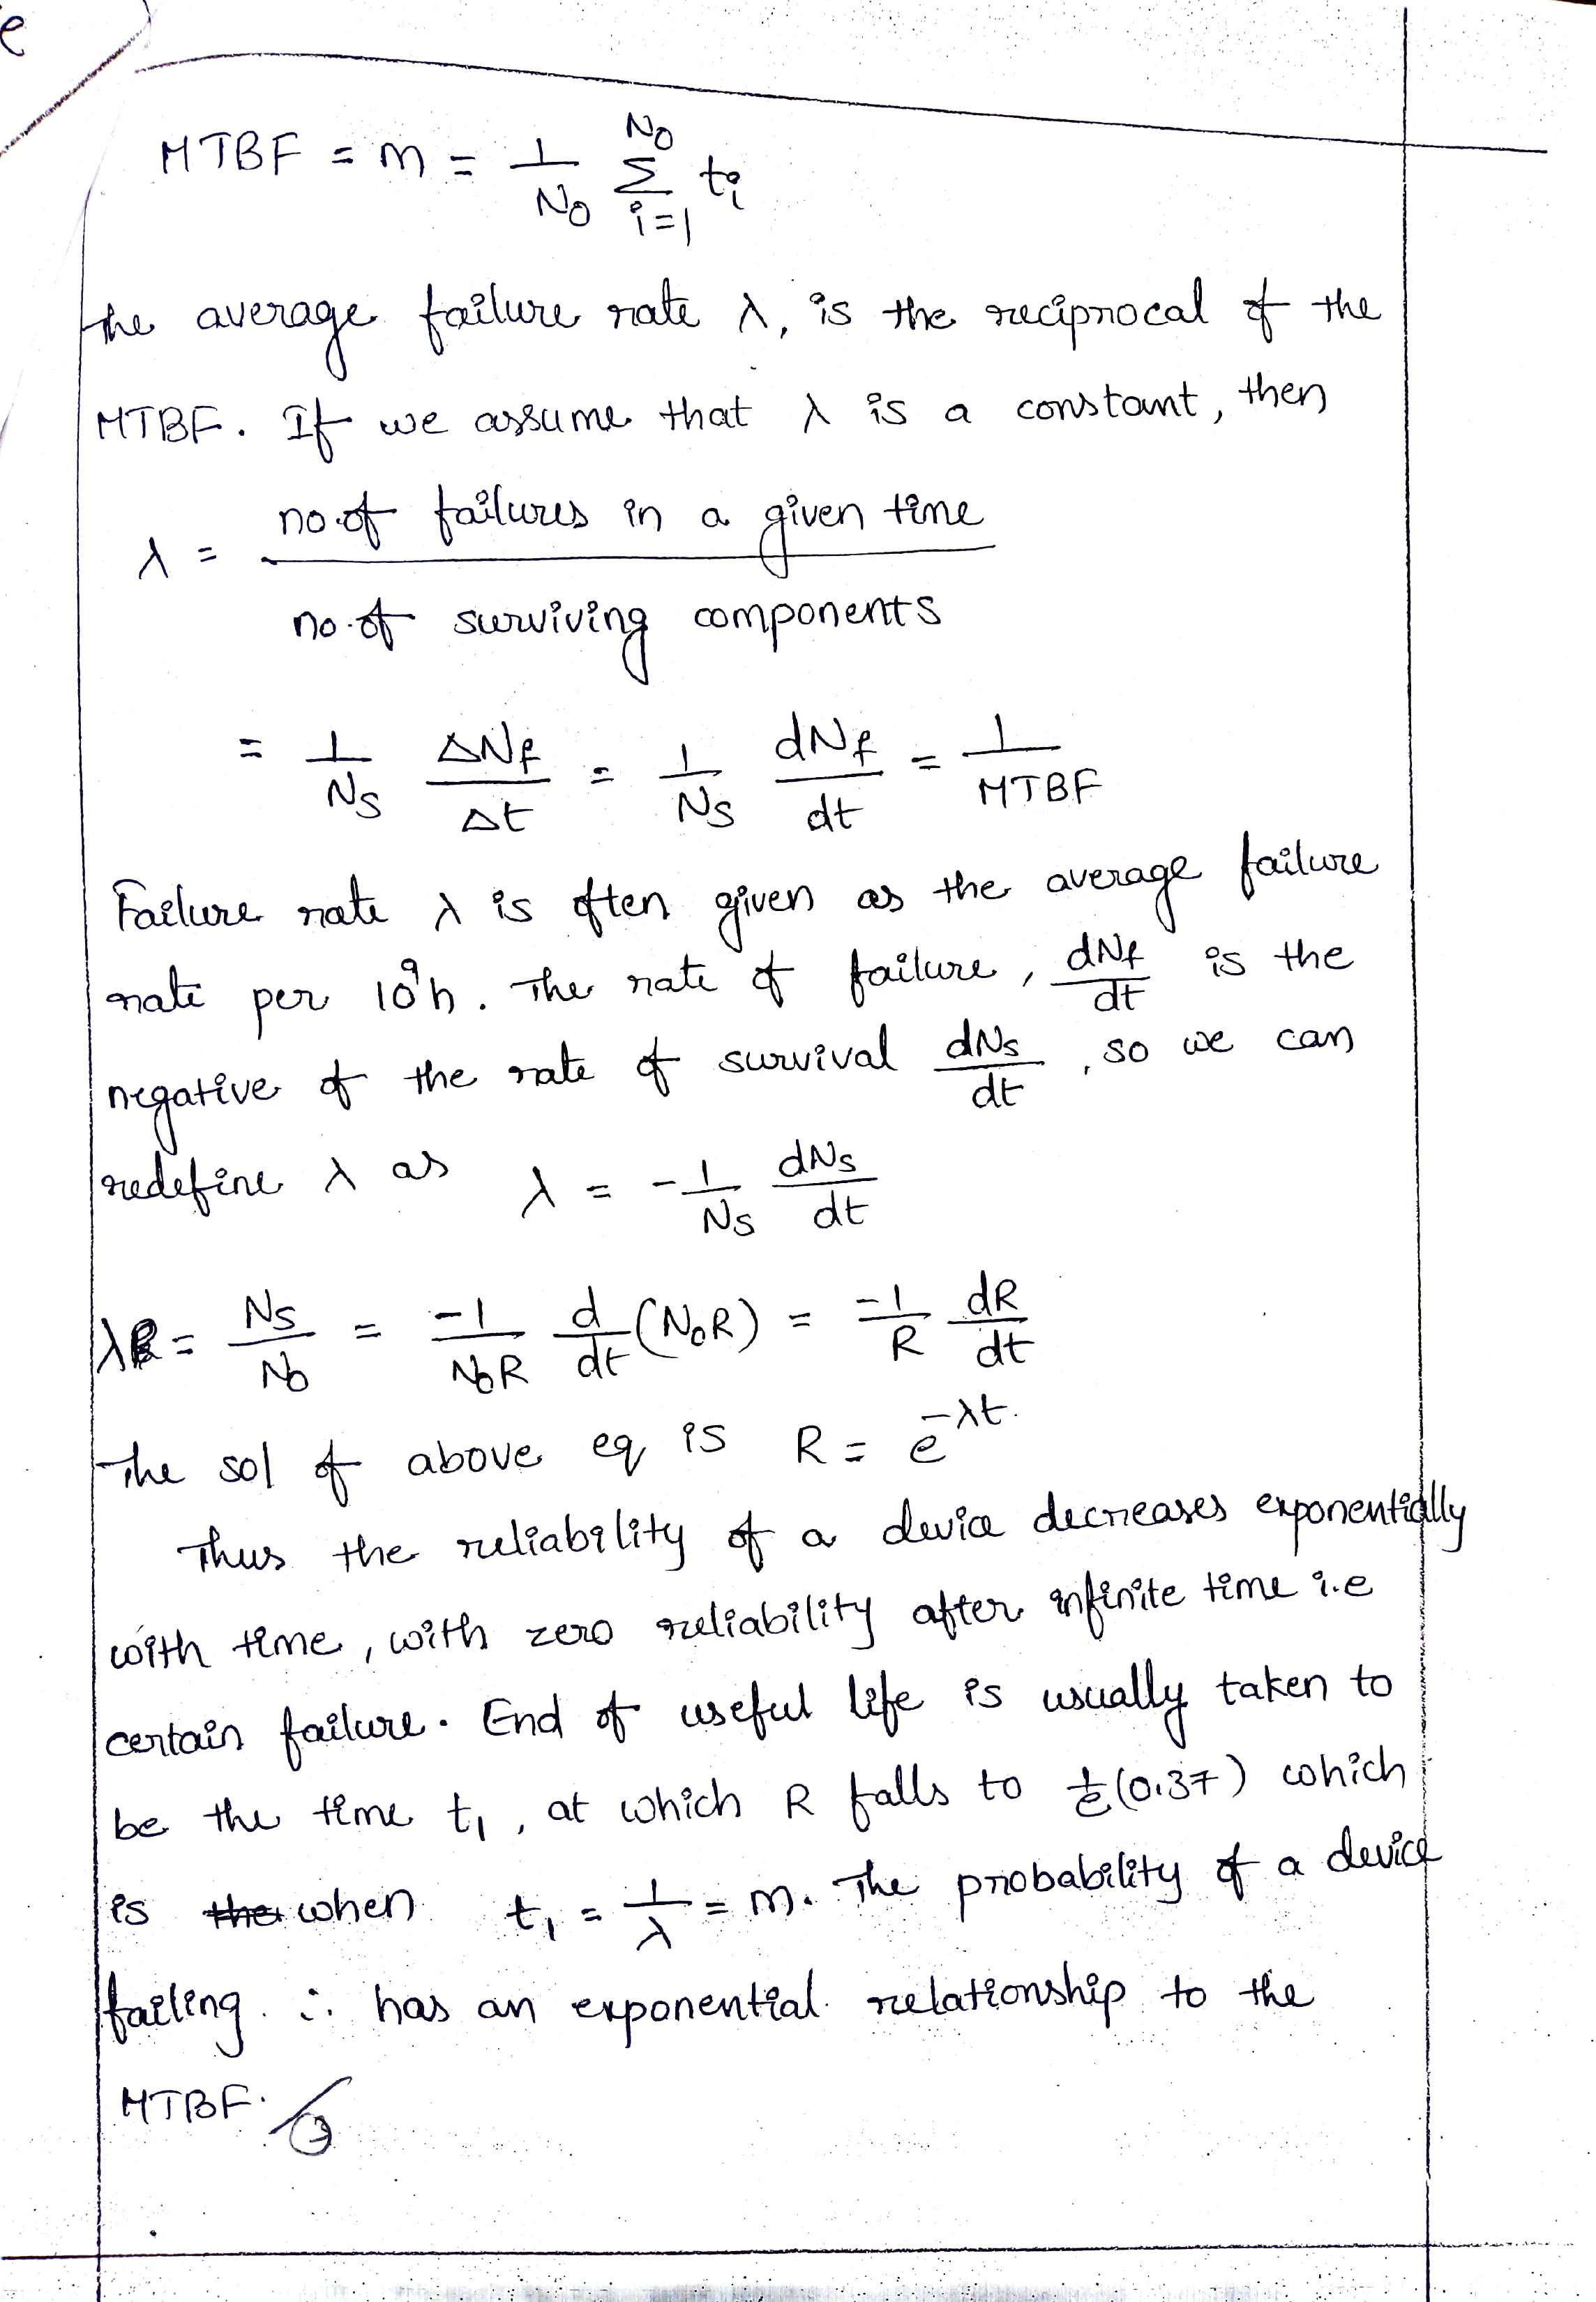 e
MTBF = m = 1/N₀ Σ_{i=1}^{N₀} tᵢ
the average failure rate λ, is the reciprocal of the
MTBF. If we assume that λ is a constant, then
λ = no.of failures in a given time / no.of surviving components
= 1/Ns ΔNf/Δt = 1/Ns dNf/dt = 1/MTBF
Failure rate λ is often given as the average failure
rate per 10⁹h. The rate of failure, dNf/dt is the
negative of the rate of survival dNs/dt, so we can
redefine λ as λ = -1/Ns dNs/dt
λ = Ns/N₀ = -1/N₀R d/dt (N₀R) = -1/R dR/dt
The sol of above eq is R = e^{-λt}.
Thus the reliability of a device decreases exponentially
with time, with zero reliability after infinite time i.e
certain failure. End of useful life is usually taken to
be the time t₁, at which R falls to 1/e (0.37) which
is when t₁ = 1/λ = m. The probability of a device
failing ∴ has an exponential relationship to the
MTBF.